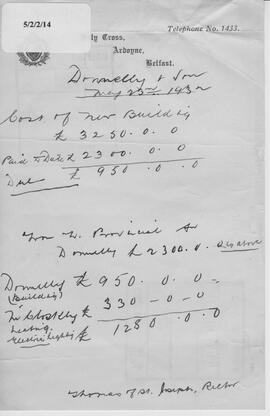 5/2/2/14
Telephone No. 1433.
ly Cross,
Ardoyne,
Belfast.
Donnelly & Son
May 23rd
Cost of New Building
£ 3250.0.0
Paid to Date £ 2300.0.0
Due £ 950.0.0
Provincial
Donnelly £ 2300.0.0 as above
Donnelly £ 950.0.0
(Building)
McCloskey £ 330-0-0
heating
Electric lighting £ 1280.0.0
Thomas of St. Joseph, Rector